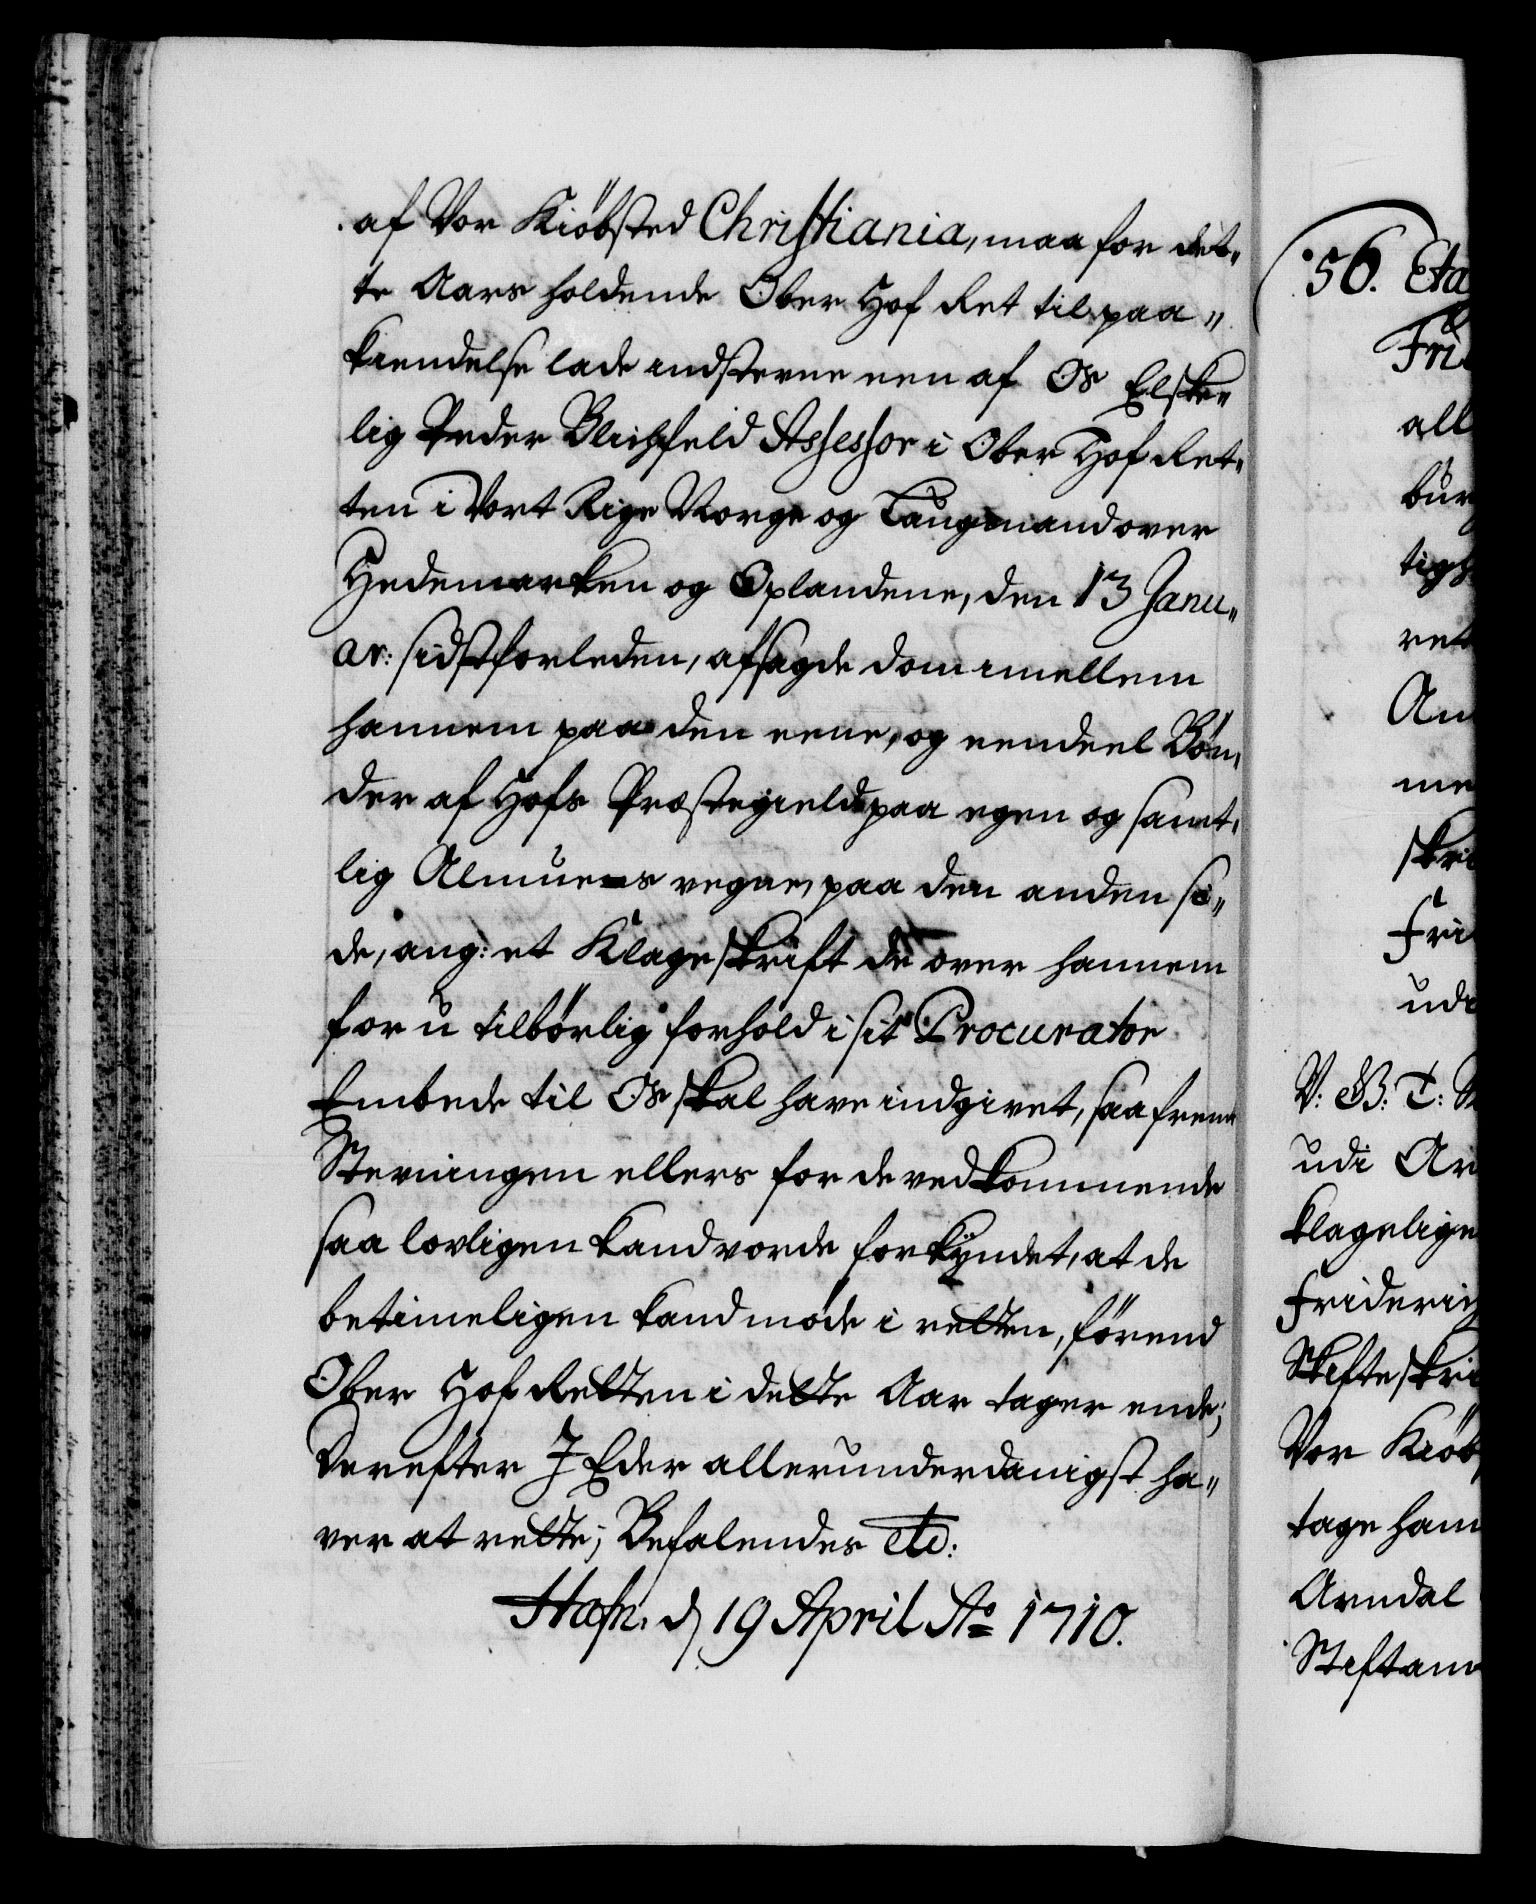 af Vor Kiöbsted Christiania, maa for det,,
te Aars holdende Ober Hof Ret til paa,,
kiendelse lade indstevne een af Os Elske,,
lig Peder Blichfeld Assessor i Ober Hof Ret,,
ten i Vort Rige Norge og Laugmand over
Hedemarken og Oplandene, den 13 Janu,,
ar: sidstforleden, afsagde dom imellem
hannem paa den eene, og eendeel Bön,,
der af Hofs Præstegield paa egen og samt,,
lig Almuens vegne, paa den anden si,,
de, ang: et Klageskrift de over hannem
for u tilbörlig forhold i sit Procurator
Embede til Os skal have indgivet, saafrem
Stevningen ellers for de vedkommende
saa lovligen kand vorde forkyndet, at de
betimeligen kand möde i retten, förend
Ober Hof Retten i dette Aar tager ende;
Derefter I Eder allerunderdanigst ha,,
ver at rette; Befalendes etc:
Hafn: d 19 April Ao 1710.
56. Eta
Fri
all
bur
tigh
ret
Am
me
skri
Fri
udi
V: G: T:
udi Ar
klagelige
Friderich
Skifteskri
Vor Kiöb
tage ham
Arndal
Stiftam